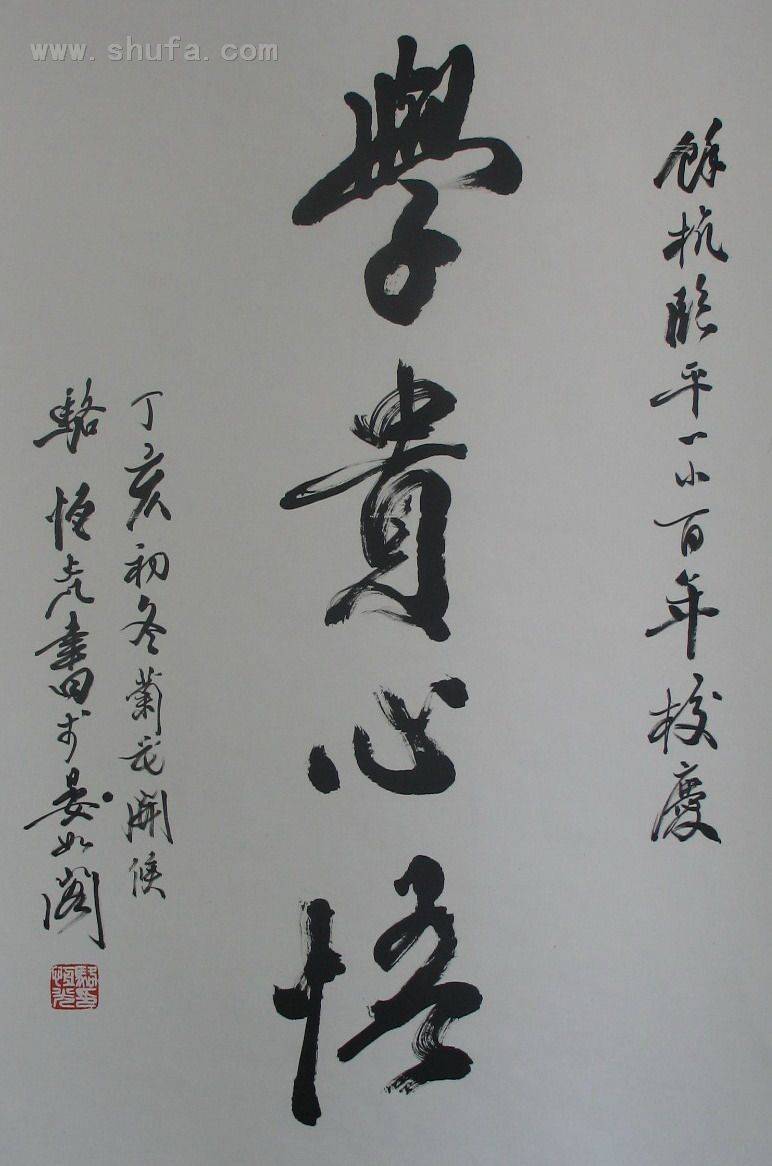 www.shufa.com
餘杭臨平一小百年校慶
學貴心悟
丁亥初冬菊花開候
駱恒光書於晏如閣
駱恒光